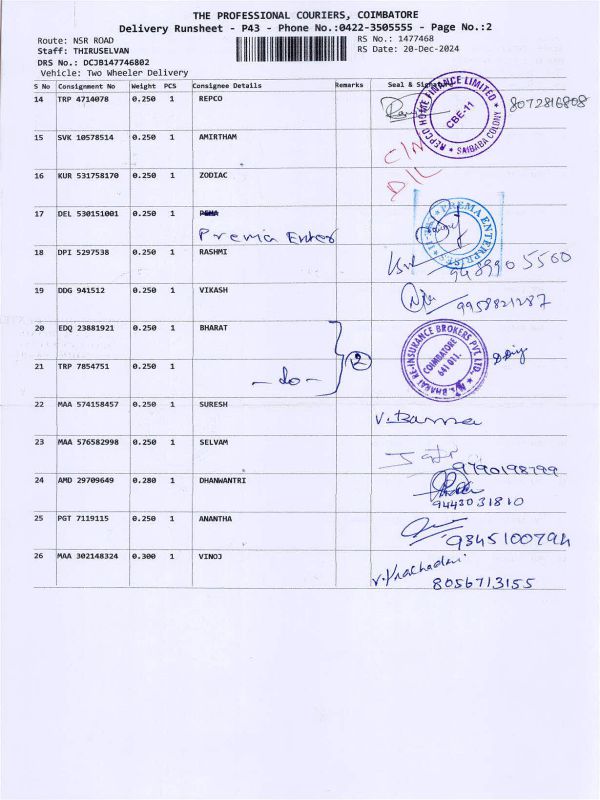 THE PROFESSIONAL COURIERS, COIMBATORE
Delivery Runsheet - P43 - Phone No.:0422-3505555 - Page No.:2
Route: NSR ROAD RS No.: 1477468
Staff: THIRUSELVAN RS Date: 20-Dec-2024
DRS No.: DCJB147746802
Vehicle: Two Wheeler Delivery
S No Consignment No Weight PCS Consignee Details Remarks Seal & Sign
14 TRP 4714078 0.250 1 REPCO 8072816808
REPCO HOME FINANCE LIMITED
CBE-11
* SAIBABA COLONY *
15 SVK 10578514 0.250 1 AMIRTHAM
16 KUR 531758170 0.250 1 ZODIAC
17 DEL 530151001 0.250 1
Prema Enter
PREMA ENTERPRISES
18 DPI 5297538 0.250 1 RASHMI 9489905560
19 DDG 941512 0.250 1 VIKASH 9958821287
20 EDQ 23881921 0.250 1 BHARAT
21 TRP 7854751 0.250 1 -do- 2
RE-INSURANCE BROKERS PVT LTD.,
COIMBATORE
641 011.
22 MAA 574158457 0.250 1 SURESH
23 MAA 576582998 0.250 1 SELVAM 9790198799
24 AMD 29709649 0.280 1 DHANWANTRI
9443031810
25 PGT 7119115 0.250 1 ANANTHA
9345100794
26 MAA 302148324 0.300 1 VINOJ
8056713155